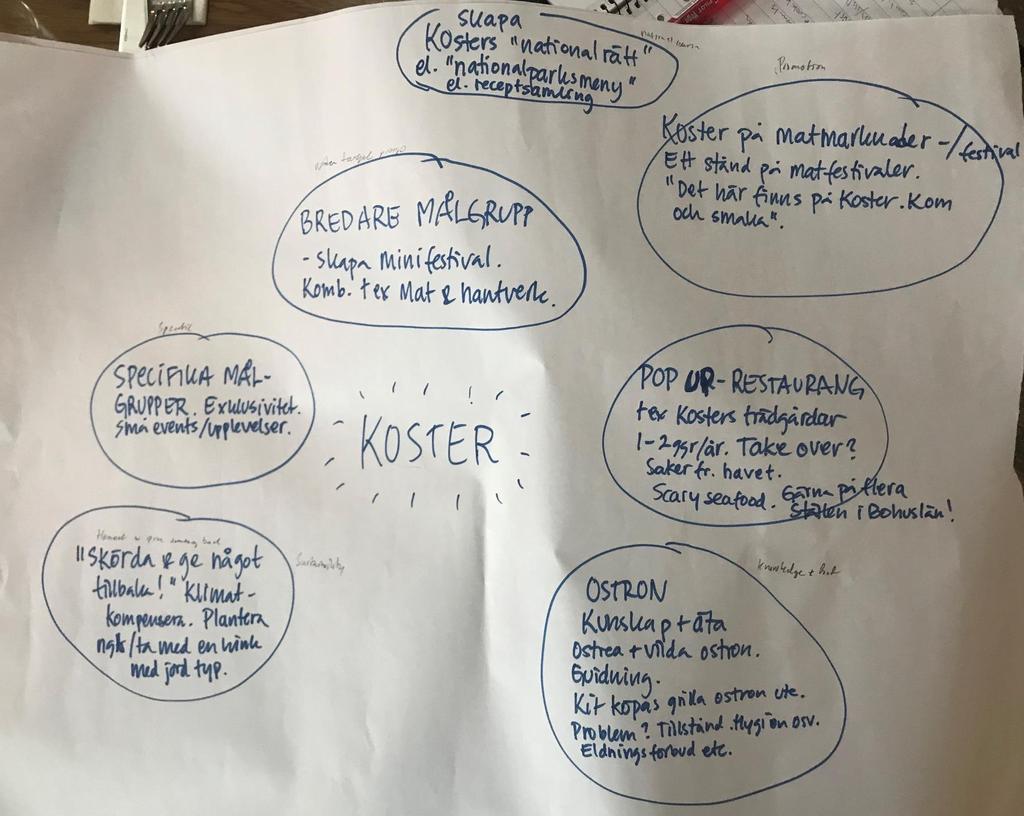 skapa
Kosters "nationalrätt"
el. "nationalparksmeny"
el. receptsamling
Promotion
Koster på matmarknader-/festival
Ett stånd på matfestivaler.
"Det här finns på Koster. Kom
och smaka".
BREDARE MÅLGRUPP
- skapa minifestival.
Komb. tex Mat & hantverk.
Specific
SPECIFIKA MÅL-
GRUPPER. Exklusivitet.
små events/upplevelser.
KOSTER
POP UP-RESTAURANG
tex Kosters trädgårdar
1-2ggr/år. Take over?
Saker fr. havet.
Scary seafood. Gärna på flera
ställen i Bohuslän!
"Skörda & ge något
tillbaka!" Klimat-
kompensera. Plantera
ngt/ta med en hink
med jord typ.
Sustainability
knowledge +
OSTRON
Kunskap + äta
Ostrea + vilda ostron.
Guidning.
Kit köpas grilla ostron ute.
Problem? Tillstånd. Hygien osv.
Eldningsförbud etc.